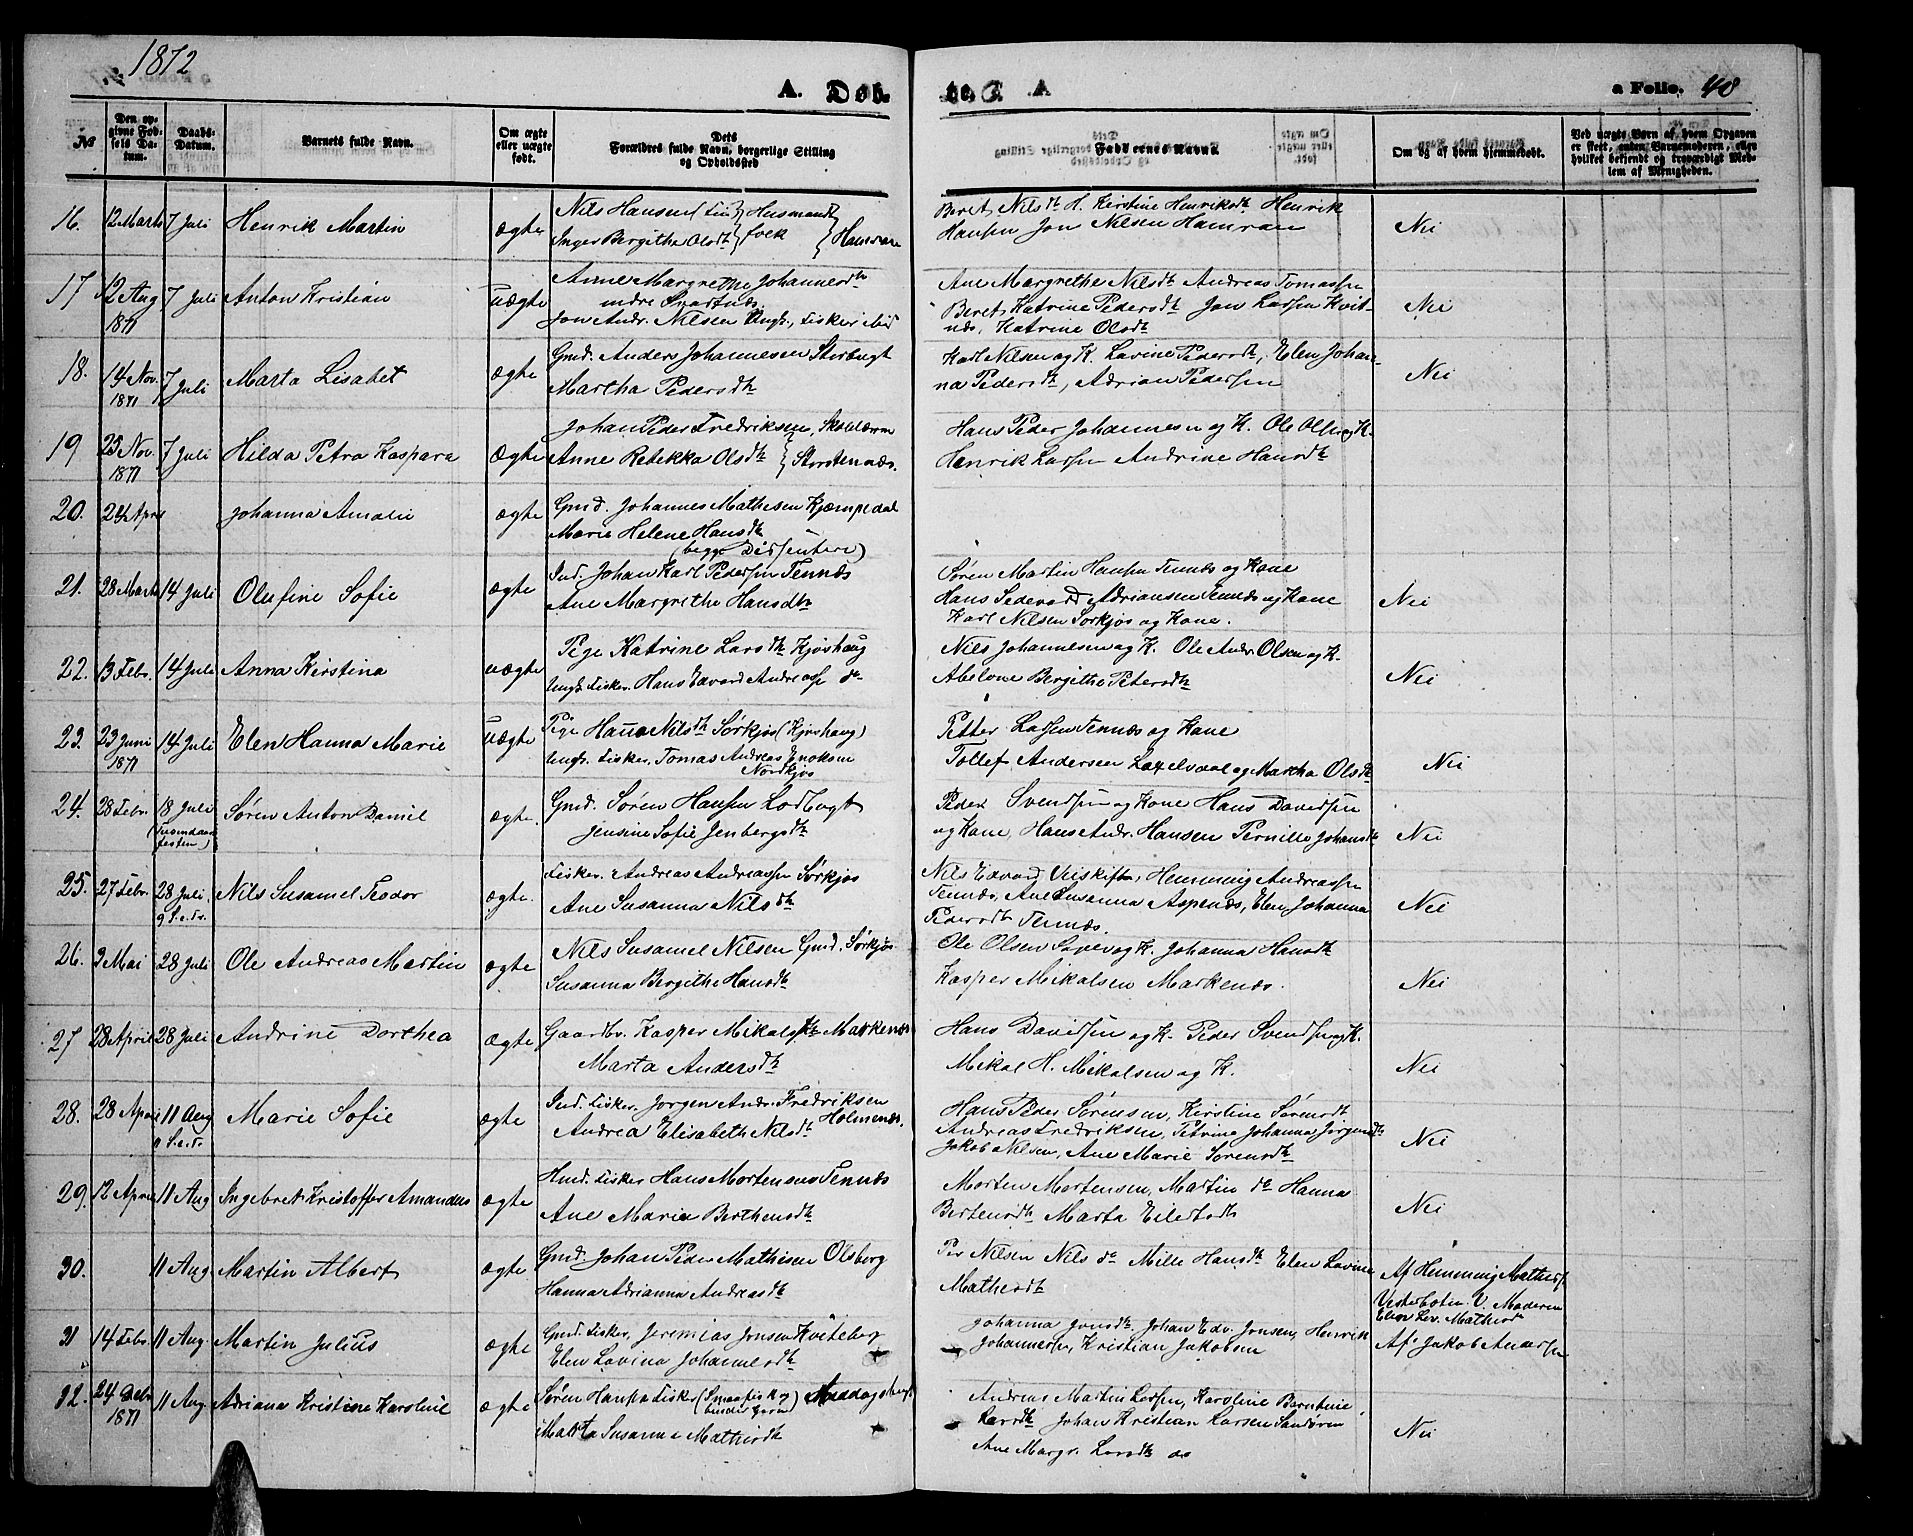 1872
A. Døb-
te. A
a Folio. 48
№
Den op-
givne Fød-
sels Da-
tum.
Daabs-
Datum.
Barnets fulde Navn.
Om ægte
eller uægte
født.
Dets
Forældres fulde Navn, borgerlige Stilling
og Opholdssted
Faddernes Navne.
Om og af hvem hjemmedøbt.
Ved uægte Børn af hvem Opgaven
er skeet, enten Barnemoderen, eller
hvilket bekjendt og troværdigt Med-
lem af Menigheden.
16. 12 Marts 7 Juli Henrik Martin ægte
Nils Hansen Husmands
Inger Bergithe Olsdtr folk Hamran
Beret Nilsdtr H. Kirstine Henriksdtr Henrik
Hansen Jon Nilsen Hamran
Nei
17 12 Aug 1871 7 Juli Anton Kristian uægte
Anne Margrethe Johannesdtr
indre Svartnæs.
Jon Andr. Nilsen Ungk., Fisker ibid
Ane Margrethe Nilsdtr Andreas Tomassen
Beret Katrine Pedersdtr Jon Larsen Kvit-
næs, Katrine Olsdtr
Nei
18. 14 Nov. 1871 7 Juli Marta Lisabet ægte
Gmd. Anders Johannesen Storbugt
Martha Pedersdtr
Karl Nilsen og K. Lavine Pedersdtr, Elen Johan-
na Pedersdtr, Adrian Pedersen
Nei
19 25 Nov. 1871 7 Juli Hilda Petra Kaspara Ægte
Johan Peder Fredriksen, Skolelærer
Anne Rebekka Olsdtr Storstennæs.
Hans Peder Johannesen og K. Ole Olsen og K.
Henrik Larsen Andrine Hansdtr
20. 24 April Johanna Amalie ægte
Gmd. Johannes Mathisen Kjempedal
Marie Helene Hansdtr
(begge Dissentere)
21. 28 Marts 14 Juli Olufine Sofie ægte
Ind. Johan Karl Pedersen Tennæs
Ane Margrethe Hansdtr
Søren Martin Hansen Tennæs og Kone
Hans Adriansen Tennæs og Kone
Karl Nilsen Sørkjos og Kone.
Nei
22. 13 Febr. 14 Juli Anna Kirstina uægte
Pige Katrine Larsdtr Kjoshaug
Ungk. Fisker. Hans Edvard Andreassen do
Nils Johannesen og K. Ole Andr. Olsen og K.
Abelone Birgithe Petersdtr
Nei
23. 23 Juni 1871 14 Juli Elen Hanna Marie uægte
Pige Hanna Nilsdtr Sørkjos (Kjoshaug)
Ungk. Fisker, Tomas Andreas Enoksen
Nordkjos
Petter Larsen Tennæs og Kone
Tollef Andersen og Martha Olsdtr
Nei
24. 28 Febr. 18 Juli Søren Anton Daniel ægte.
Gmd. Søren Hansen Lodbugt
Jensine Sofie Jenbergsdtr
Peder Svendsen og Kone Hans Davidsen
og Kone, Hans Andr. Hansen Pernille Johansdtr
Nei
25. 27 Febr. 28 Juli. 9 S. e. Tr. Nils Susamel Teodor ægte.
Fisker. Andreas Andreassen Sørkjos
Ane Susanna Nilsdtr
Nils Edvard Hemming Andreassen
Tennæs, Ane Susanna Aspenæs, Elen Johanna
Pedersdtr Tennæs.
Nei
26. 3 Mai 28 Juli Ole Andreas Martin ægte
Nils Susamel Nilsen Gmd. Sørkjos
Susanna Bergithe Hansdtr
Ole Olsen og K. Johanna Hansdtr
Kasper Mikalsen Markenæs.
Nei
27 28 April 28 Juli Andrine Dorthea ægte
Gaardbr. Kasper Mikalsen Markenæs
Marta Andersdtr
Hans Davidsen og K. Peder Svendsen og K.
Mikal H. Mikalsen og K.
Nei
28. 28 April 11 Aug 11 S. e. Tr. Marie Sofie ægte
Ind. Fisker. Jørgen Andr. Fredriksen
Andrea Elisabeth Nilsdtr Holmenæs.
Hans Peder Sørensen, Kirstine Sørensdtr
Andreas Fredriksen, Petrine Johanna Jørgensdtr
Jakob Nilsen, Ane Marie Sørensdtr
Nei
29. 12 April 11 Aug Ingebret Kristoffer Amandus ægte
Hmd. Fisker Hans Mortensen Tennæs
Ane Maria Berthensdtr
Morten Mortensen, Martin do Hanna
Bertensdtr Marta Eilertsdtr
Nei
30. 11 Aug Martin Albert ægte
Gmd. Johan Peder Mathisen Olsborg
Hanna Adrianna Andreasdtr
Per Nilsen Nils do Mille Hansdtr Elen Lovine
Mathisdtr
Af Hemming Mathiss.
Vesterbotn. V. Moderen
Elen Lov. Mathisd
31 14 Febr. 11 Aug. Martin Julius ægte
Gmd. Fisker, Jeremias Jonsen Kviteberg
Elen Lovina Johannesdtr
Johanna Jonsdtr, Johan Edv. Jonsen, Henrik
Johannessen, Kristian Jakobsen
Af Jakob Andersen
32. 24 Debr 1871 11 Aug. Adriana Kristine Karoline ægte
Søren Hansen Fisker
Susanna Mathisdtr
Andreas Martin Larsen, Karoline Berntine
Larsdtr Johan Kristian Larsen Sandøren
Ane Margr. Larsdtr do
Nei